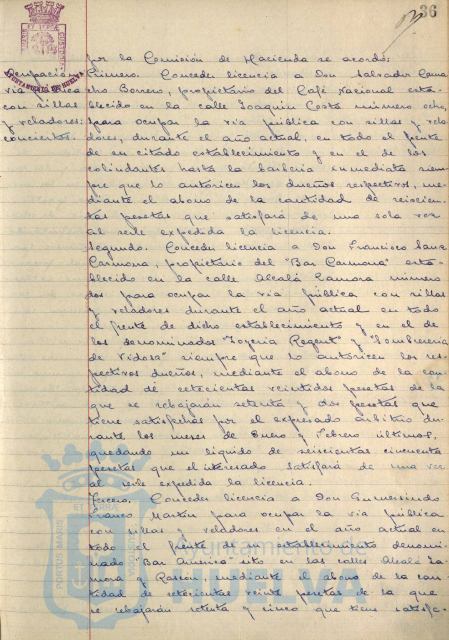 36
AYUNTAMIENTO DE HUELVA
Ocupación
vía pública
con sillas
y veladores:
conciertos.
por la Comisión de Hacienda se acordó:
Primero. Conceder licencia a Don Salvador Cama
cho Borrero, propietario del Café Nacional esta-
blecido en la calle Joaquin Costa número ocho,
para ocupar la vía pública con sillas y vela
dores, durante el año actual, en todo el frente
de su citado establecimiento y en el de los
colindantes hasta la barbería inmediata siem
pre que lo autoricen los dueños respectivos, me-
diante el abono de la cantidad de seiscien
tas pesetas que satisfará de una sola vez
al serle expedida la licencia.
Segundo. Conceder licencia a Don Francisco
Carmona, propietario del "Bar Carmona" esta-
blecido en la calle Alcalá Zamora número
dos para ocupar la vía pública con sillas
y veladores durante el año actual en todo
el frente de dicho establecimiento y en el de
los denominados "Joyería Regent" y "Sombrerería
de Vidosa" siempre que lo autoricen los res-
pectivos dueños, mediante el abono de la can-
tidad de setecientas veintidos pesetas de la
que se rebajarán setenta y dos pesetas que
tiene satisfechas por el expresado arbitrio du-
rante los meses de Enero y Febrero últimos,
quedando un líquido de seiscientas cincuenta
pesetas que el interesado satisfará de una vez
al serle expedida la licencia.
Tercero. Conceder licencia a Don Gumersindo
Franco Martín para ocupar la vía pública
con sillas y veladores en el año actual en
todo el frente de su establecimiento denomi-
nado "Bar America" sito en las calles Alcalá Za-
mora y Rascon, mediante el abono de la can-
tidad de setecientas veinte pesetas de la que
se rebajarán setenta y cinco que tiene satisfe-
Ayuntamiento de
HUELVA
PORTUS MARIS ET TERRAE CUSTODIA